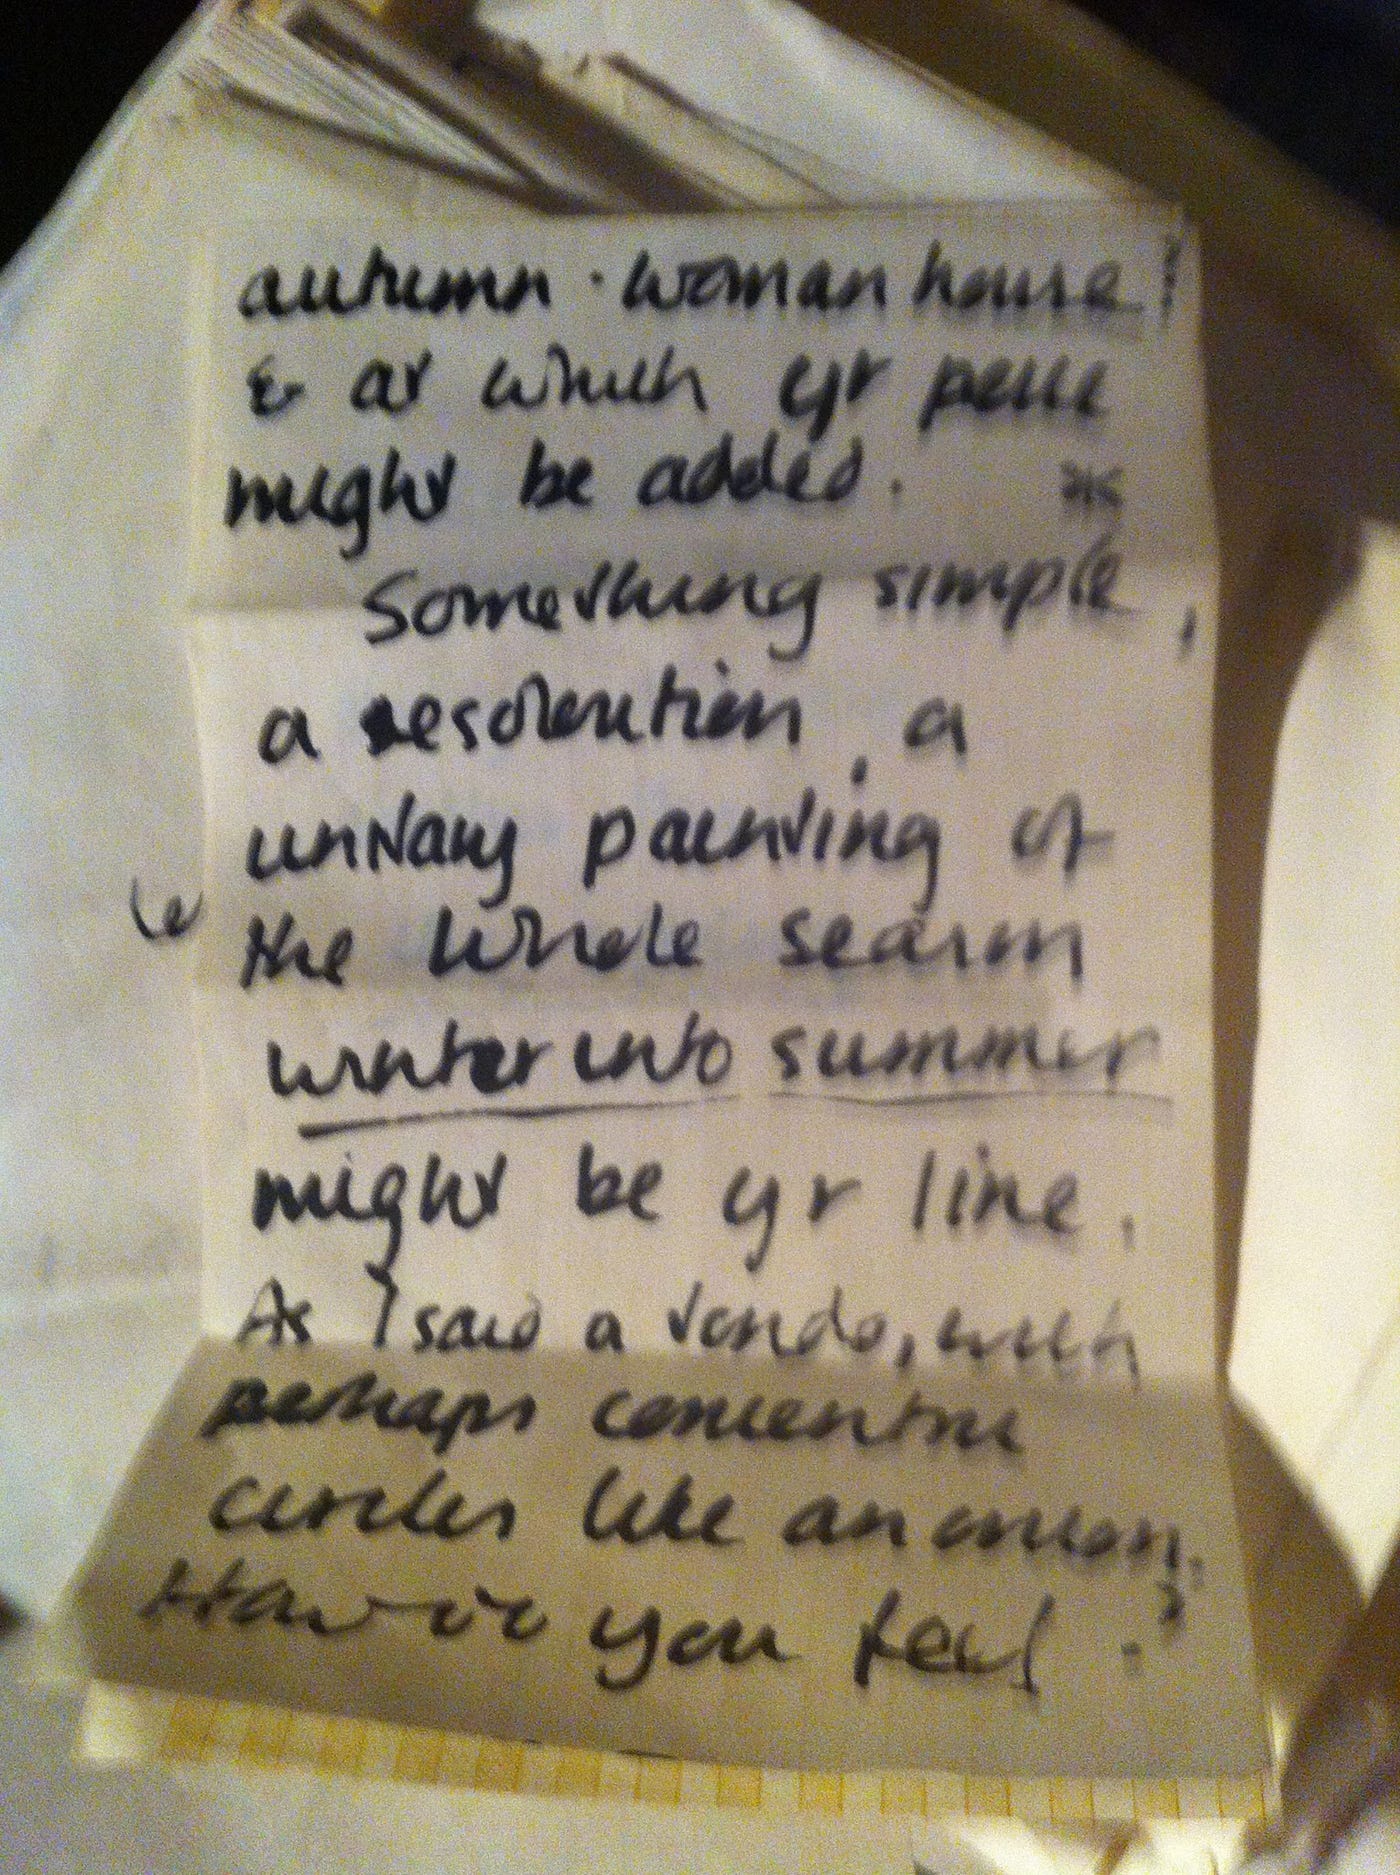 autumn · woman house!
& at which yr piece
might be added. *
Something simple,
a resolution, a
unitary painting of
the whole season
winter into summer
might be yr line.
As I said a rondo, with
perhaps concentric
circles like an onion.
How do you feel?